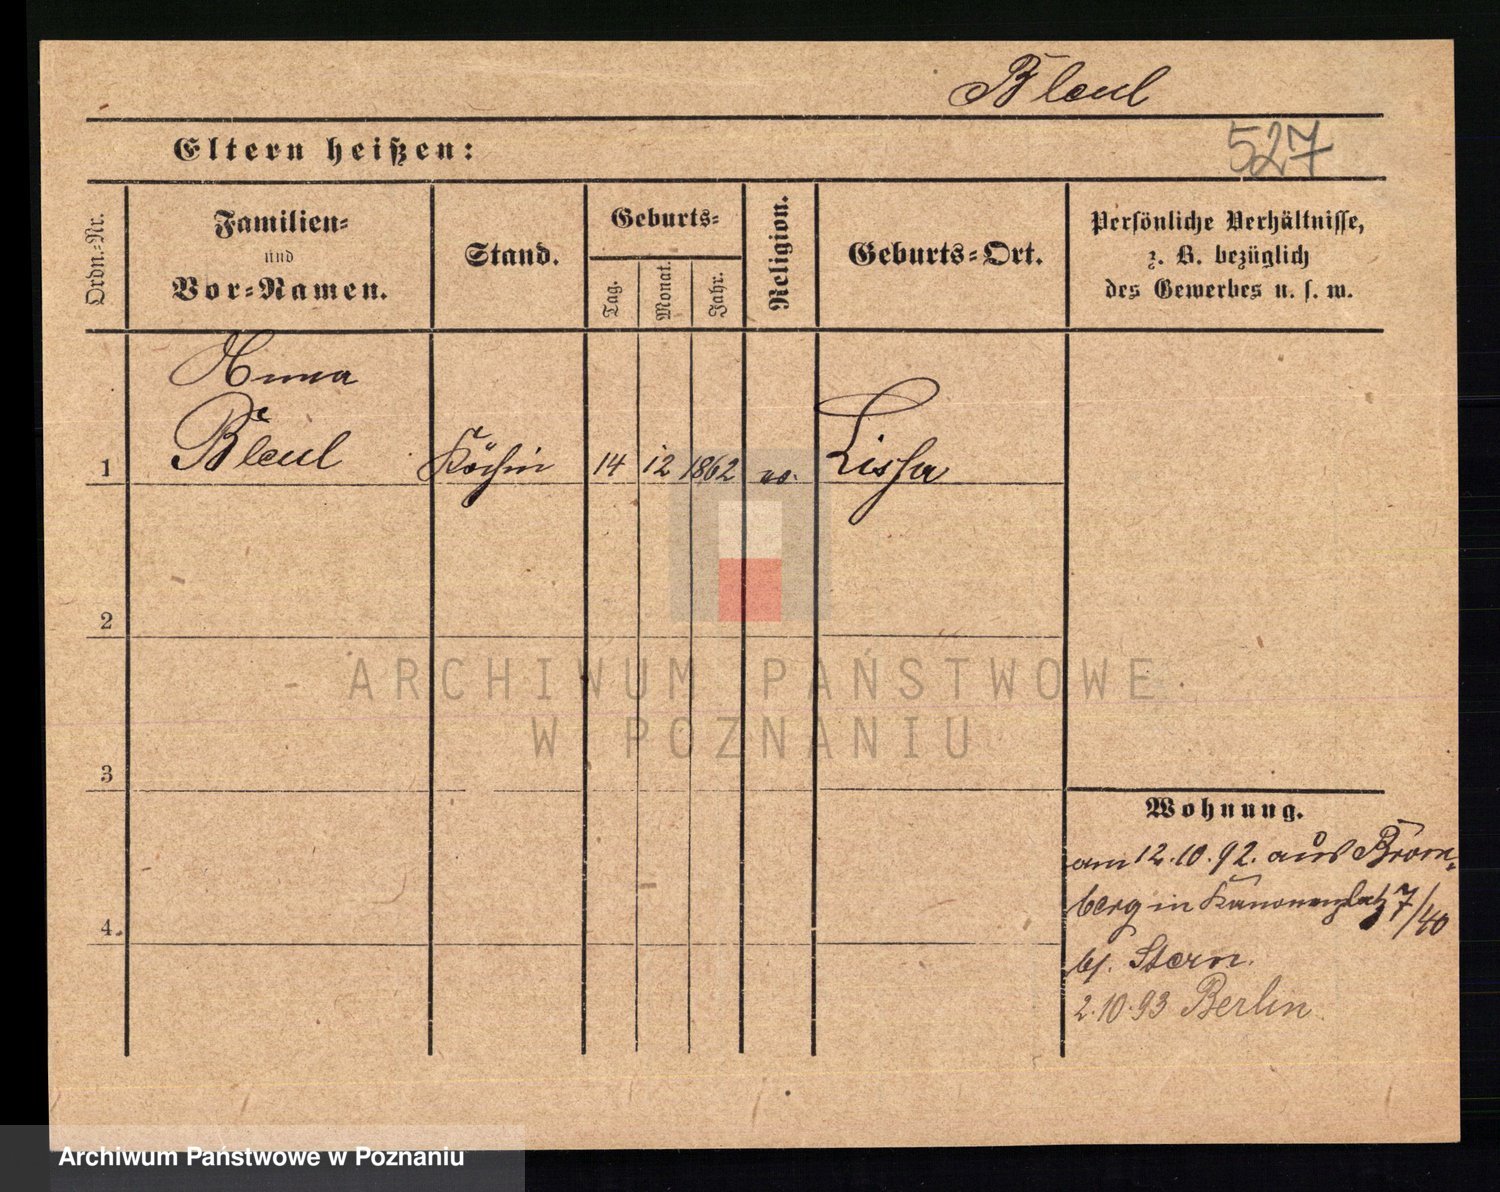 Bleul
Eltern heißen:
527
Ordn.-Nr.
Familien-
und
Vor-Namen.
Stand.
Geburts-
Tag.
Monat.
Jahr.
Religion.
Geburts-Ort.
Persönliche Verhältnisse,
z. B. bezüglich
des Gewerbes u. s. w.
Anna
1 Bleul Köchin 14 12 1862 Lissa
2
3
4
Wohnung.
am 12.10.92. aus Brom-
berg in Kanonenplatz 7/40
b/. Stern.
2.10.93 Berlin
ARCHIWUM PAŃSTWOWE
W POZNANIU
Archiwum Państwowe w Poznaniu